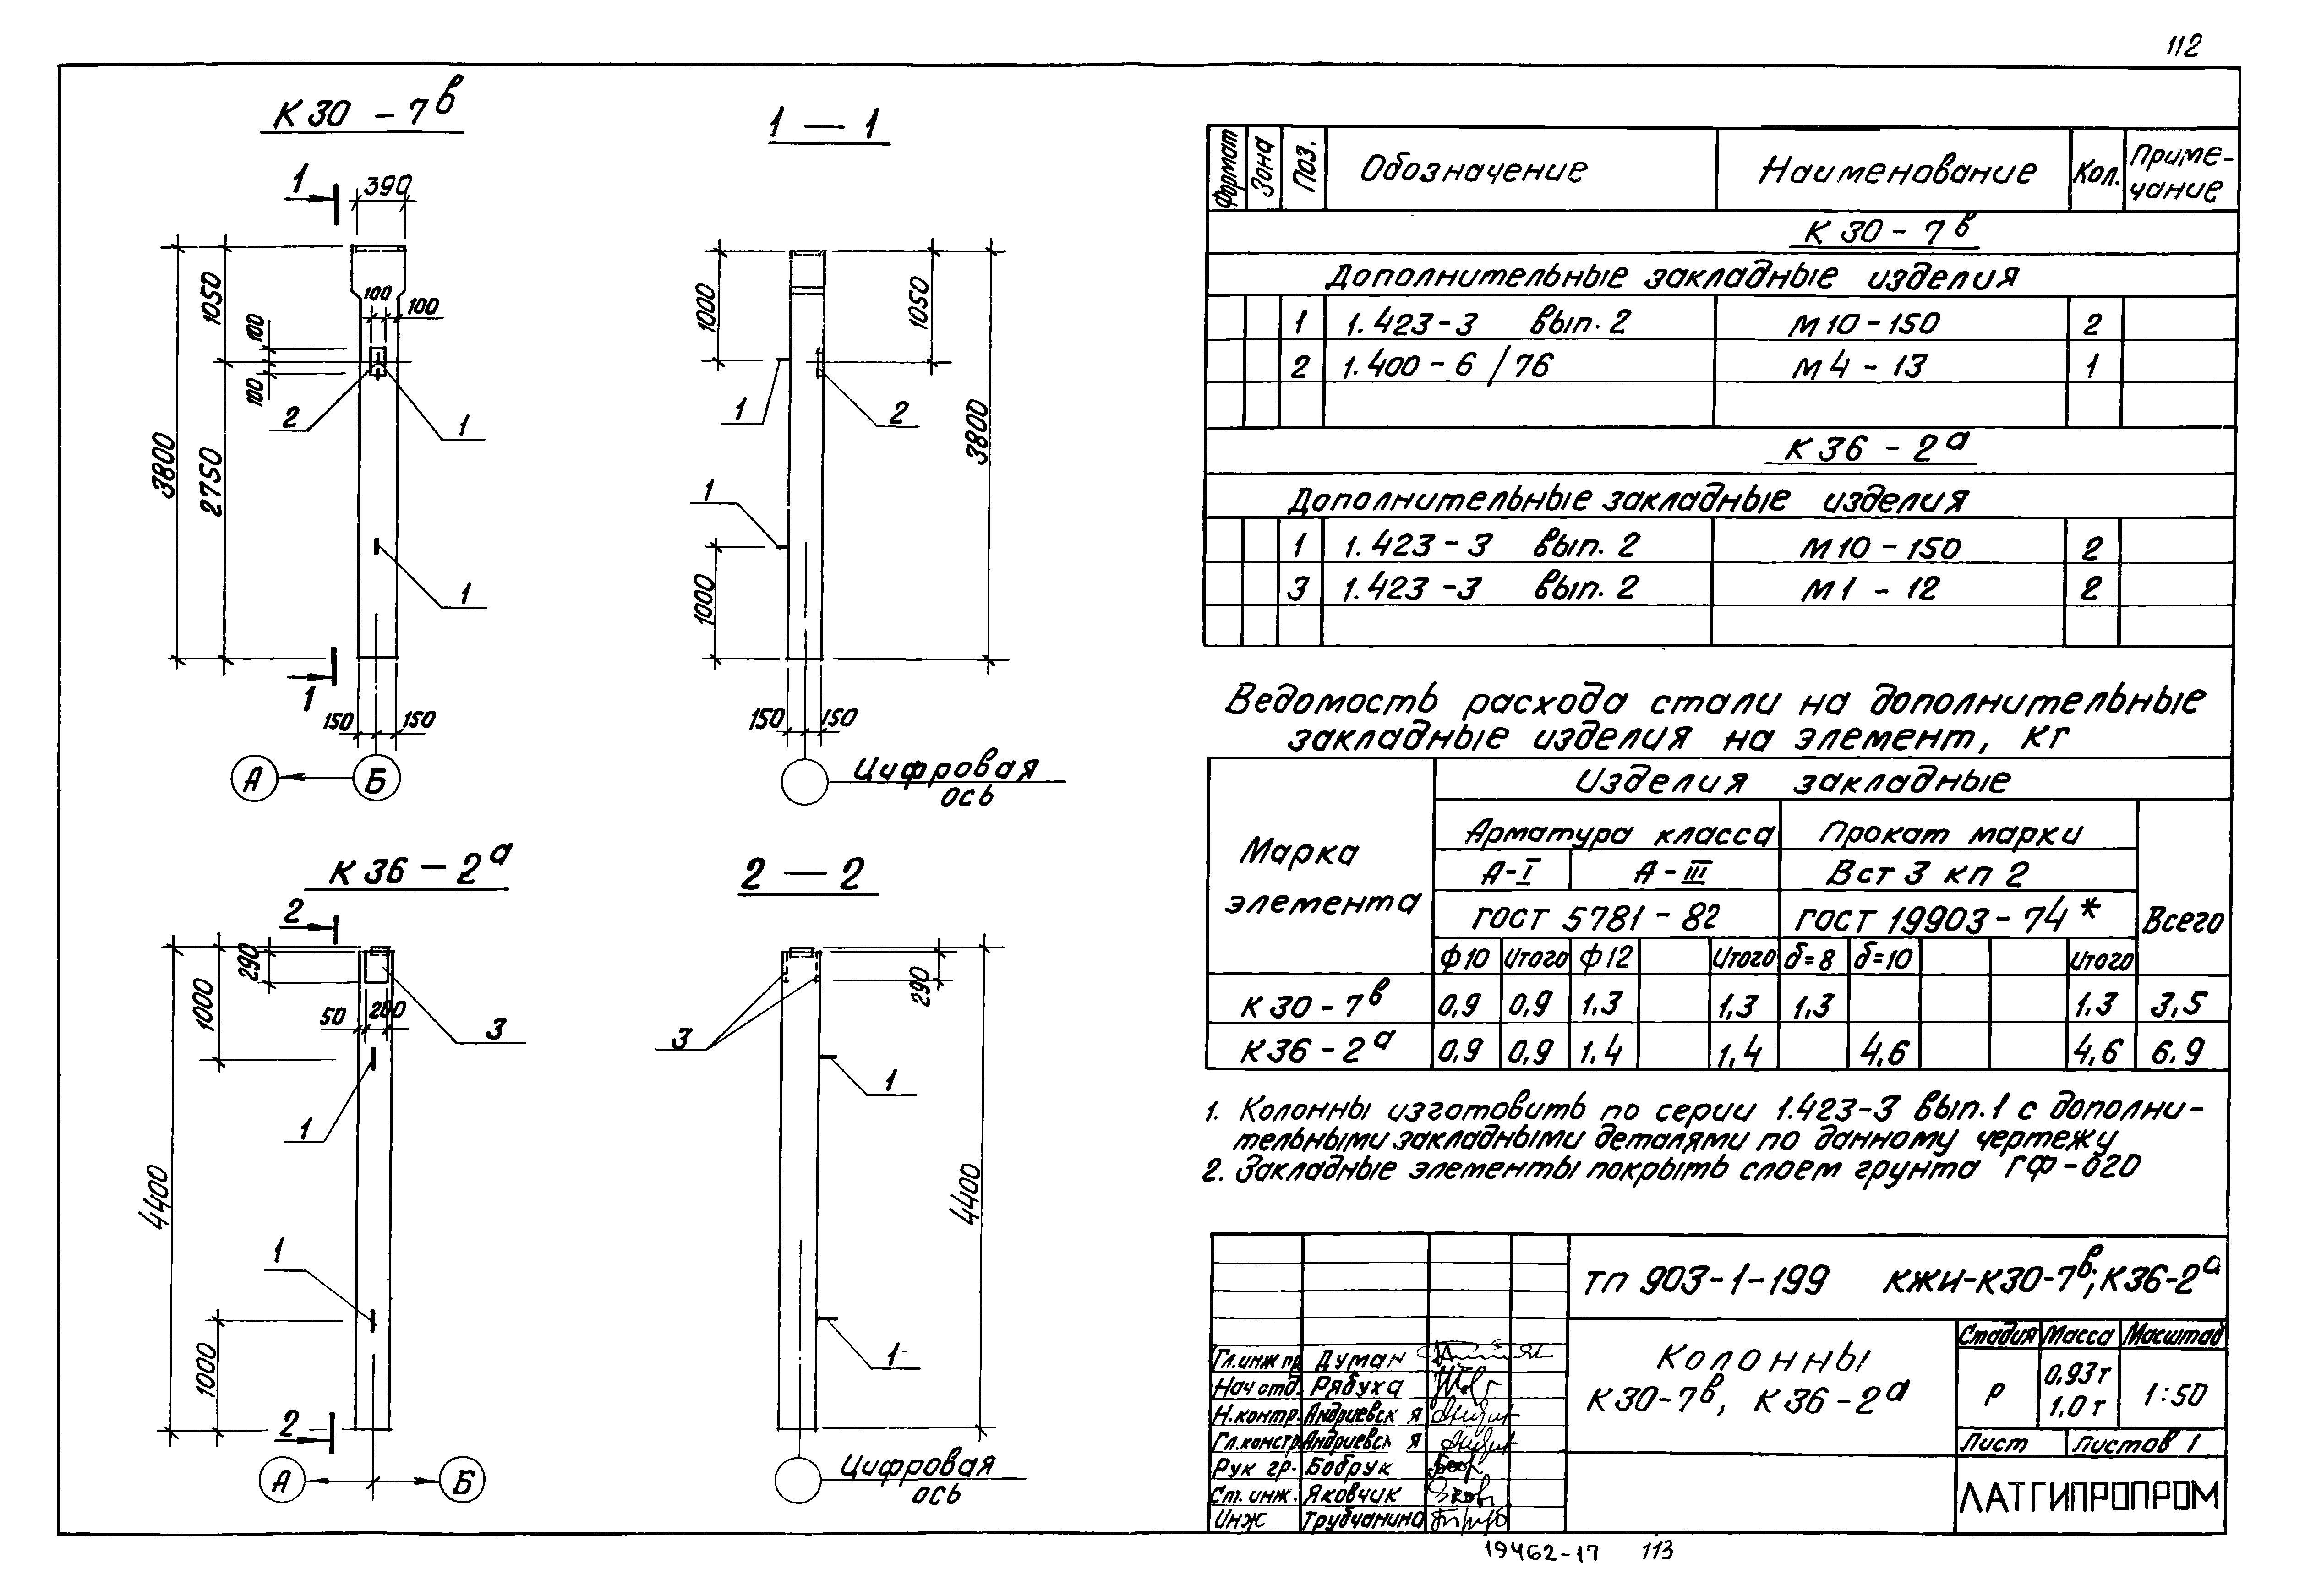 112
К 30 – 7в
1 — 1
1
390
3800
1050
2750
100
100
100
100
2
1
1
1
150
150
А
Б
1000
1050
1
2
3800
1
1000
150
150
Цифровая
ось
К 36 – 2а
2 — 2
2
290
1000
50
200
3
1
4400
1
1000
2
А
Б
290
3
1
4400
1
Цифровая
ось
Формат Зона Поз. Обозначение Наименование Кол. Приме-
чание
К 30 – 7в
Дополнительные закладные изделия
1 1.423-3 вып. 2 М10-150 2
2 1.400-6/76 М4-13 1
К 36 – 2а
Дополнительные закладные изделия
1 1.423-3 вып. 2 М10-150 2
3 1.423-3 вып. 2 М1-12 2
Ведомость расхода стали на дополнительные
закладные изделия на элемент, кг
Марка
элемента
Изделия закладные
Арматура класса Прокат марки
А-I А-III Вст 3 кп 2
ГОСТ 5781-82 ГОСТ 19903-74* Всего
ф10 Итого ф12 Итого δ=8 δ=10 Итого
К 30 – 7в 0,9 0,9 1,3 1,3 1,3 1,3 3,5
К 36 – 2а 0,9 0,9 1,4 1,4 4,6 4,6 6.9
1. Колонны изготовить по серии 1.423-3 вып.1 с дополни-
тельными закладными деталями по данному чертежу
2. Закладные элементы покрыть слоем грунта ГФ-020
ТП 903-1-199 КЖИ-К30-7в; К36-2а
Колонны
К30-7в, К36-2а
Стадия Масса Масштаб
Р 0,93т
1,0т 1:50
Лист Листов 1
ЛАТГИПРОПРОМ
Гл.инж пр Думан
Нач отд. Рябуха
Н.контр. Андриевск я
Гл.констр Андриевск я
Рук гр. Бобрук
Ст. инж. Яковчик
Инж Трубчанина
19462-17 113